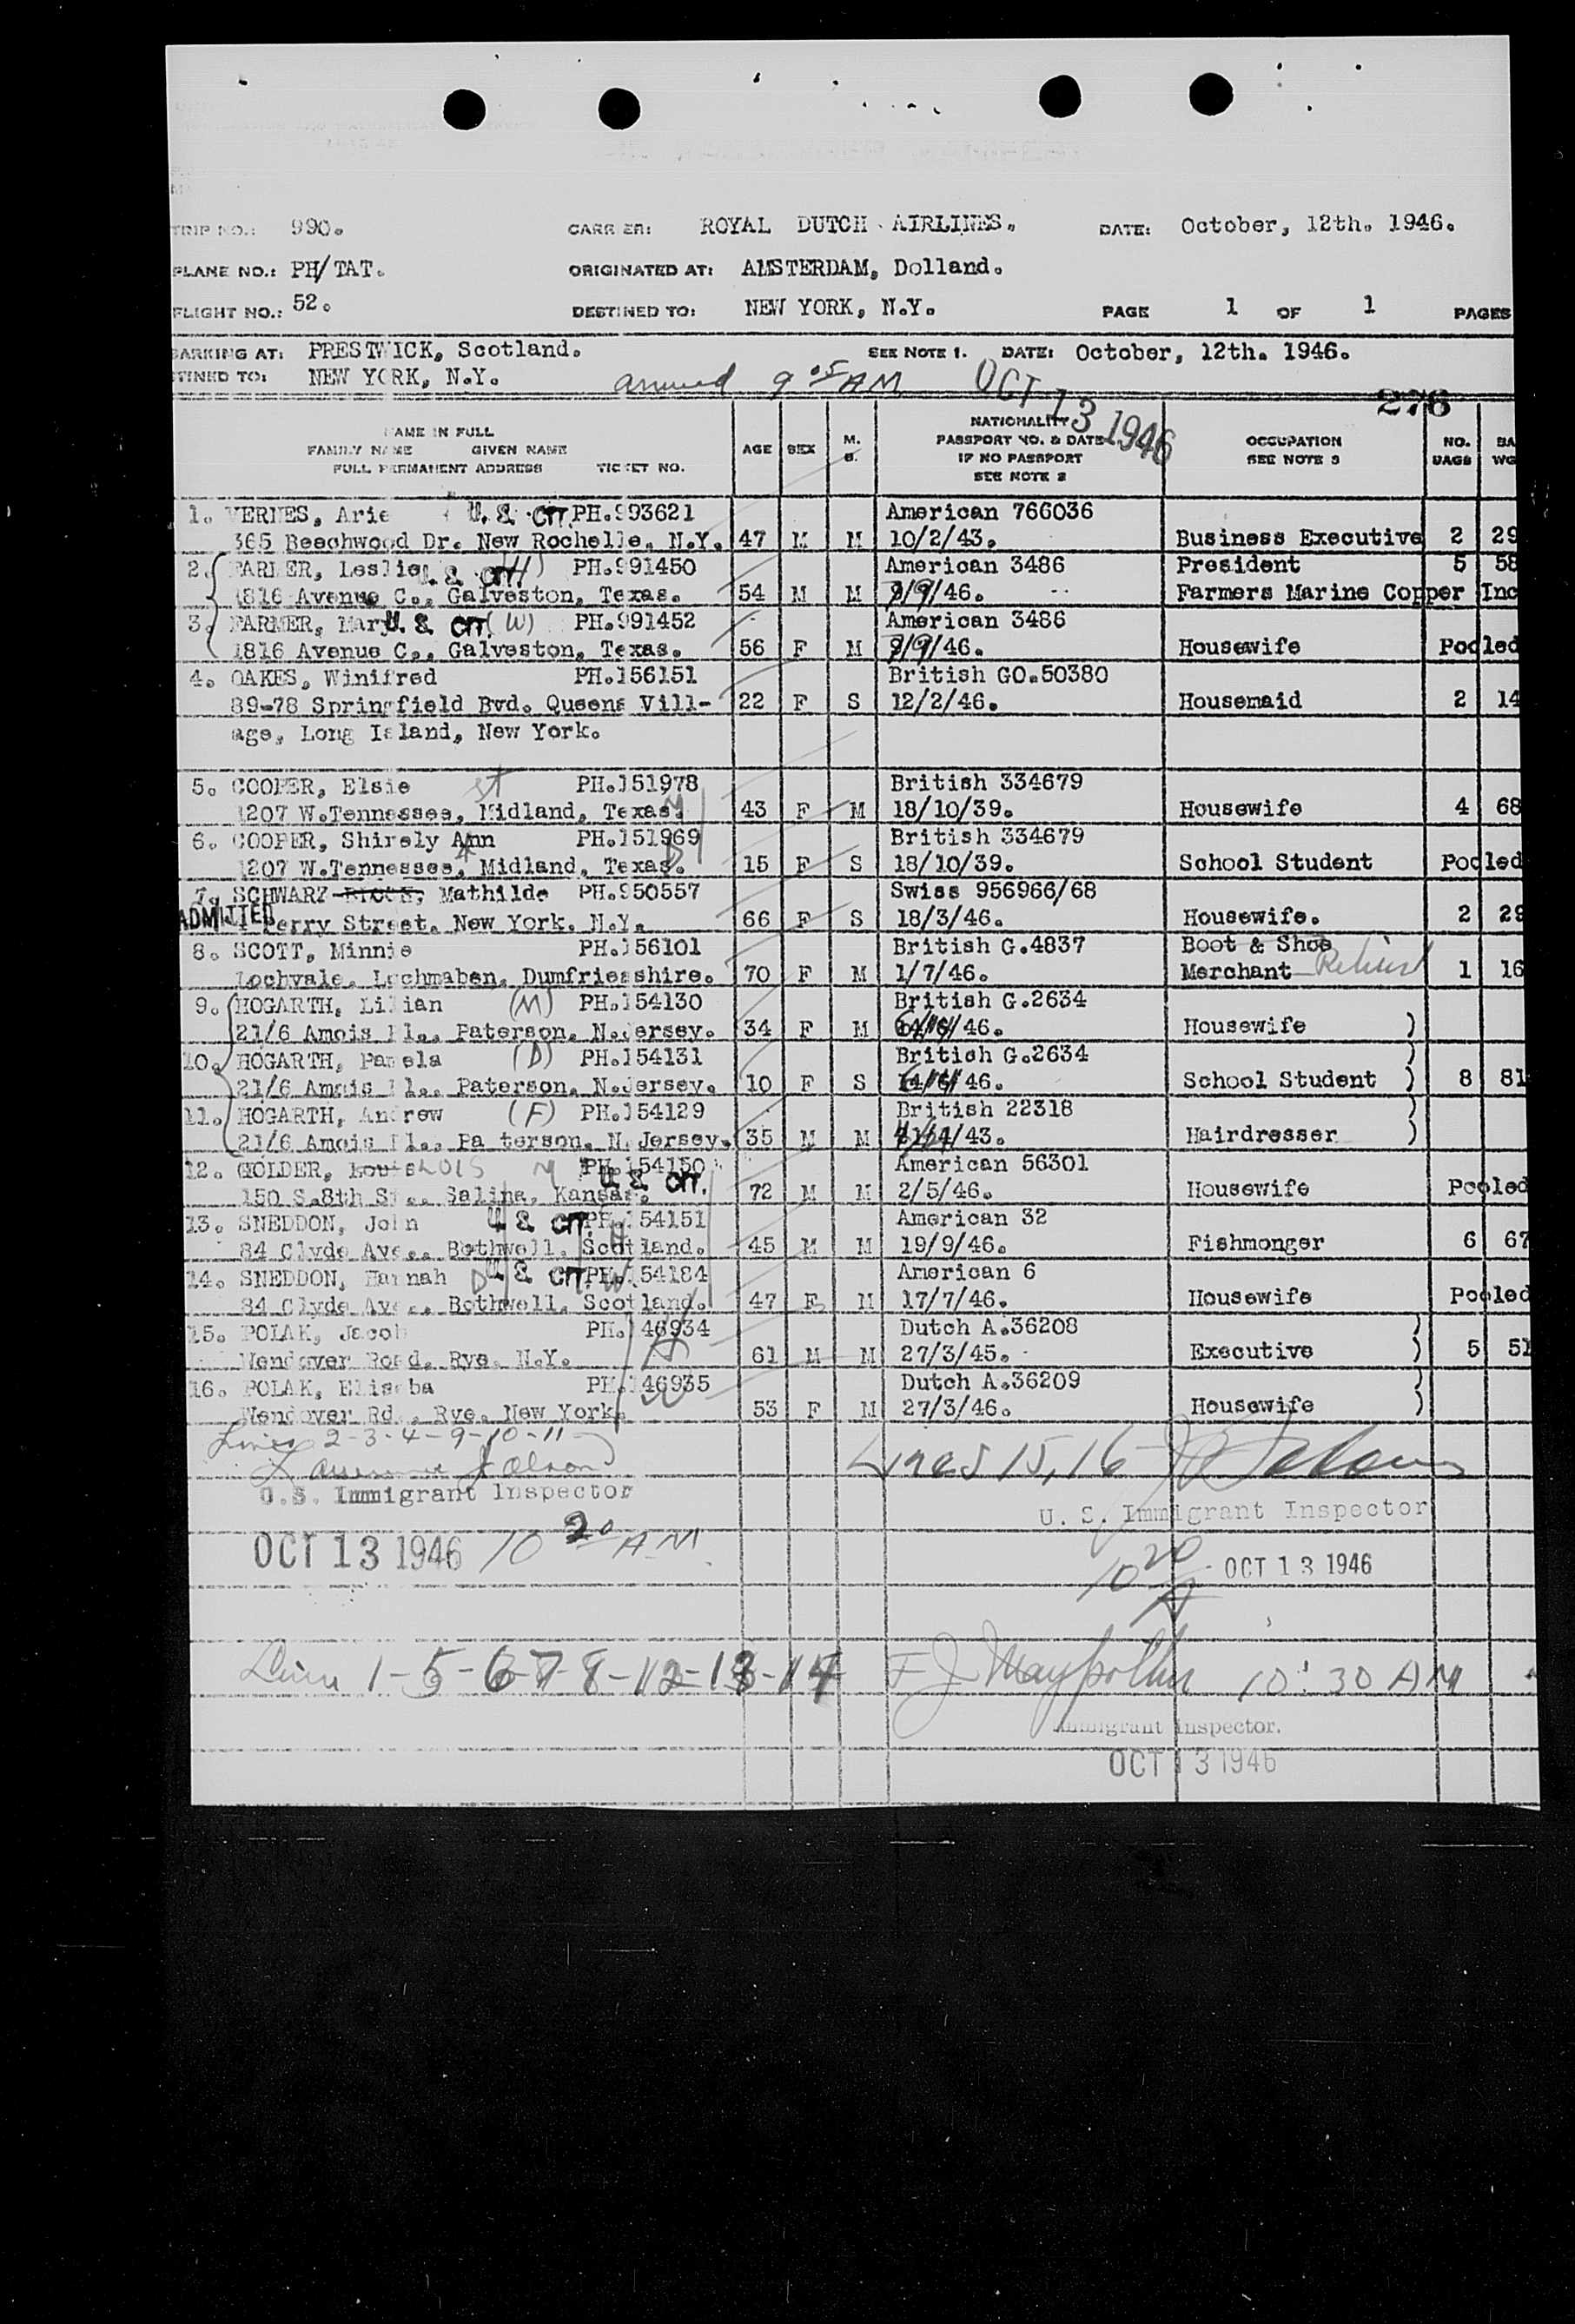 TRIP NO.: 990. CARRIER: ROYAL DUTCH AIRLINES. DATE: October, 12th. 1946.
PLANE NO.: PH/TAT. ORIGINATED AT: AMSTERDAM, Dolland.
FLIGHT NO.: 52. DESTINED TO: NEW YORK, N.Y. PAGE 1 OF 1 PAGES
BARKING AT: PRESTWICK, Scotland. SEE NOTE 1. DATE: October, 12th. 1946.
TINED TO: NEW YORK, N.Y. arrived 9 05 AM OCT 13 1946
276
NAME IN FULL
FAMILY NAME GIVEN NAME
FULL PERMANENT ADDRESS TICKET NO.
AGE SEX M. S.
NATIONALITY
PASSPORT NO. & DATE
IF NO PASSPORT
SEE NOTE 2
OCCUPATION
SEE NOTE 3
NO. BAGS
BA WG
1. VERNES, Arie U. S. CIT. PH.993621 American 766036
365 Beechwood Dr. New Rochelle, N.Y. 47 M M 10/2/43. Business Executive 2 29
2. FARMER, Leslie U. S. CIT. (H) PH.991450 American 3486 President 5 58
1816 Avenue C., Galveston, Texas. 54 M M 9/9/46. Farmers Marine Copper Inc
3. FARMER, Mary U. S. CIT. (W) PH.991452 American 3486
1816 Avenue C., Galveston, Texas. 56 F M 9/9/46. Housewife Pooled
4. OAKES, Winifred PH.156151 British GO.50380
89-78 Springfield Bvd. Queens Vill- 22 F S 12/2/46. Housemaid 2 14
age, Long Island, New York.
5. COOPER, Elsie PH.151978 British 334679
1207 W.Tennessee, Midland, Texas. M 43 F M 18/10/39. Housewife 4 68
6. COOPER, Shirely Ann PH.151969 British 334679
1207 W.Tennessee, Midland, Texas. D 15 F S 18/10/39. School Student Pooled
7. SCHWARZ Mathilde PH.950557 Swiss 956966/68
ADMITTED Perry Street. New York. N.Y. 66 F S 18/3/46. Housewife. 2 29
8. SCOTT, Minnie PH.156101 British G.4837 Boot & Shoe
Lochvale. Lochmaben. Dumfriesshire. 70 F M 1/7/46. Merchant Retired 1 16
9. HOGARTH, Lilian (M) PH.154130 British G.2634
21/6 Amois Pl., Paterson, N.Jersey. 34 F M /46. Housewife )
10. HOGARTH, Pamela (D) PH.154131 British G.2634 )
21/6 Amois Pl., Paterson, N.Jersey. 10 F S /46. School Student ) 8 81
11. HOGARTH, Andrew (F) PH.154129 British 22318 )
21/6 Amois Pl., Pa terson. N. Jersey. 35 M M /43. Hairdresser )
12. GOLDER, Louis LOIS PH.154150 American 56301
150 S.8th St., Salina, Kansas. U. S. CIT. 72 M M 2/5/46. Housewife Pooled
13. SNEDDON, John U. S. CIT. PH.154151 American 32
84 Clyde Ave., Bothwell. Scotland. H 45 M M 19/9/46. Fishmonger 6 67
14. SNEDDON, Hannah U. S. CIT. PH.154184 W American 6
84 Clyde Ave., Bothwell, Scotland. 47 F M 17/7/46. Housewife Pooled
15. POLAK, Jacob PH.146934 Dutch A.36208 )
Wendover Road. Rye. N.Y. H 61 M M 27/3/45. Executive ) 5 51
16. POLAK, Eliseba PH.146935 Dutch A.36209 )
Wendover Rd., Rye. New York. W 53 F M 27/3/46. Housewife )
Lines 2-3-4-9-10-11
Lines 15, 16
U.S. Immigrant Inspector
U. S. Immigrant Inspector
OCT 13 1946 10 20 AM
10 20 A OCT 13 1946
Line 1-5-6-7-8-12-13-14 10:30 AM
Immigrant Inspector.
OCT 13 1946